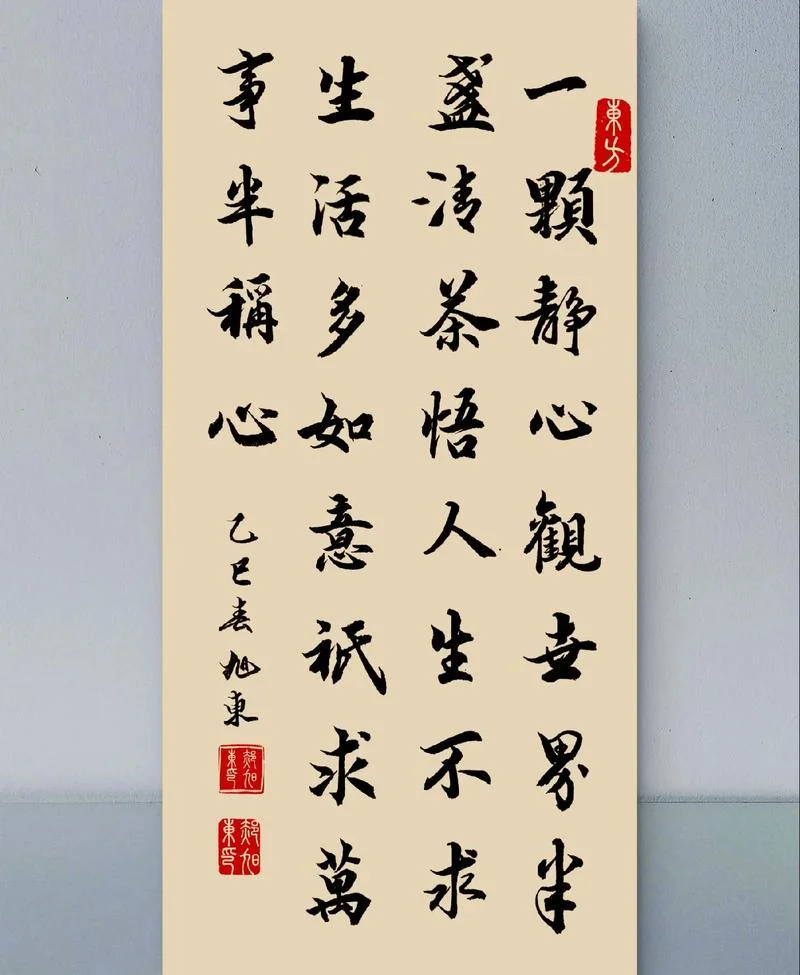 東方
一顆静心觀世界半
盞清茶悟人生不求
生活多如意祇求萬
事半稱心
乙巳春旭東